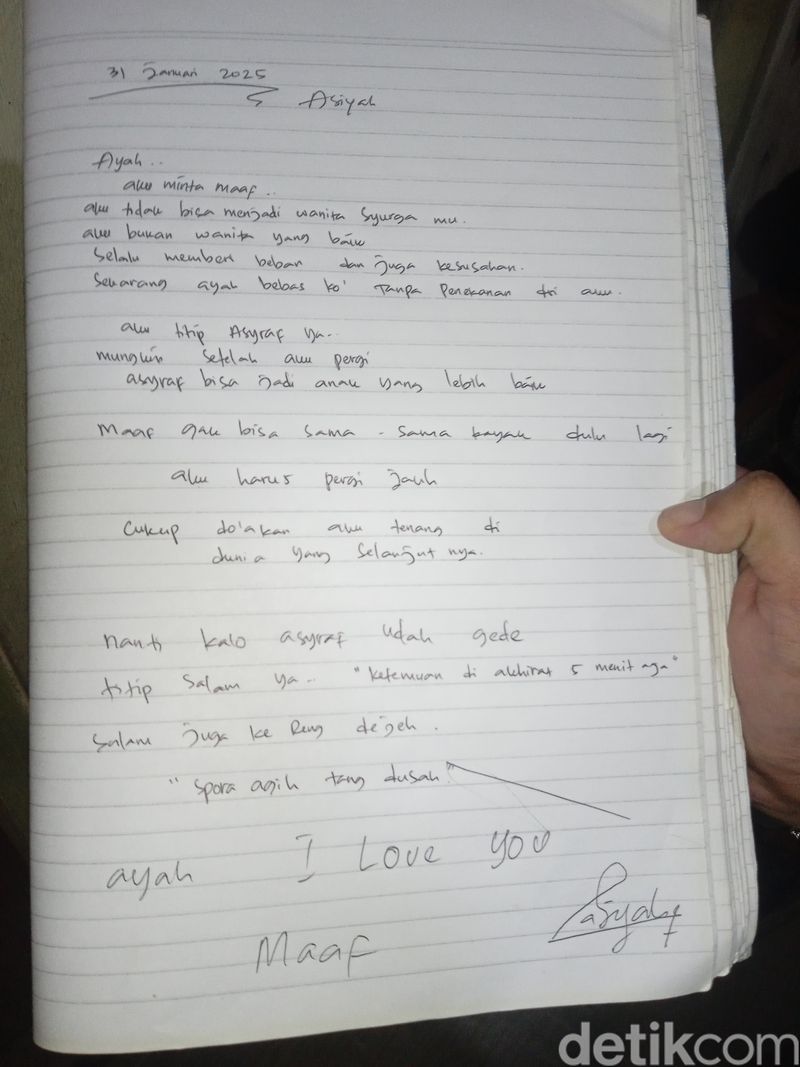 31 Januari 2025
Asiyah
Ayah..
aku minta maaf..
aku tidak bisa menjadi wanita syurga mu.
aku bukan wanita yang baik
Selalu memberi beban dan juga kesusahan.
Sekarang ayah bebas ko' Tanpa Penekanan dri aku.
aku titip Asyraf ya..
mungkin setelah aku pergi
asyraf bisa jadi anak yang lebih baik
Maaf gak bisa sama - sama kayak dulu lagi
aku harus pergi jauh
Cukup do'akan aku tenang di
dunia yang selanjut nya.
nanti kalo asyraf udah gede
titip salam ya.. "ketemuan di akhirat 5 menit aga"
Salam juga ke Reng dejeh.
"Spora agih tang dusah"
ayah I Love You
Maaf
Asyah
detikcom